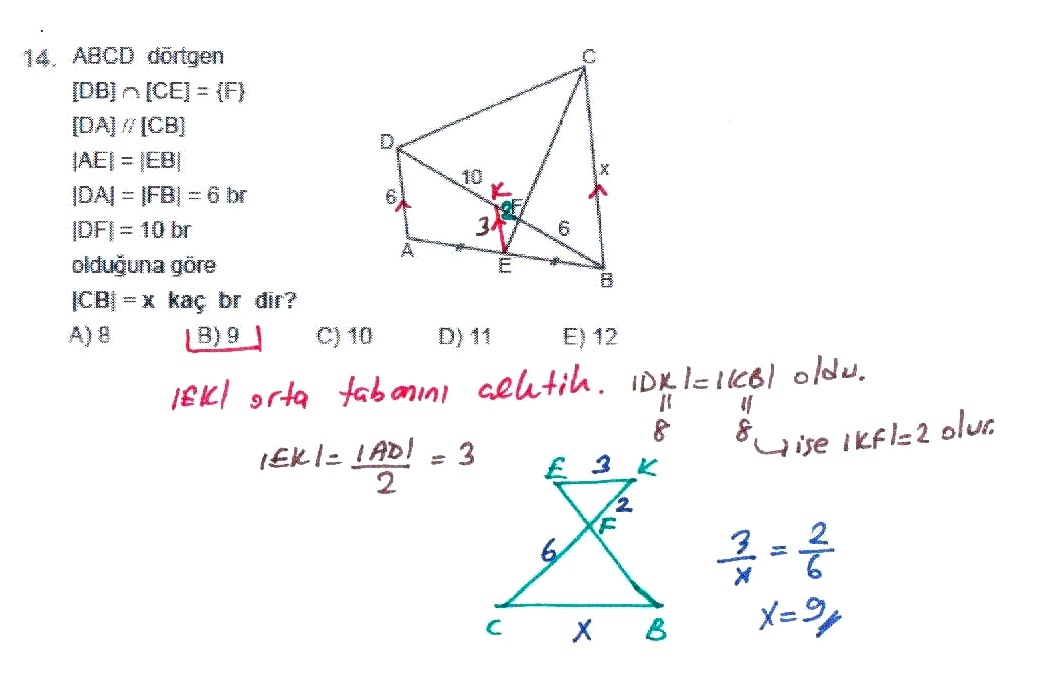 14. ABCD dörtgen
[DB] ∩ [CE] = {F}
[DA] // [CB]
|AE| = |EB|
|DA| = |FB| = 6 br
|DF| = 10 br
olduğuna göre
|CB| = x kaç br dir?
A) 8 B) 9 C) 10 D) 11 E) 12
C
D
10
K
x
6
2
F
3
6
A
E
B
|EK| orta tabanını çektik. |DK|=|KB| oldu.
8 8 ise |KF|=2 olur.
|EK|= |AD|/2 = 3
E 3 K
2
F
6
C x B
3/x = 2/6
x=9